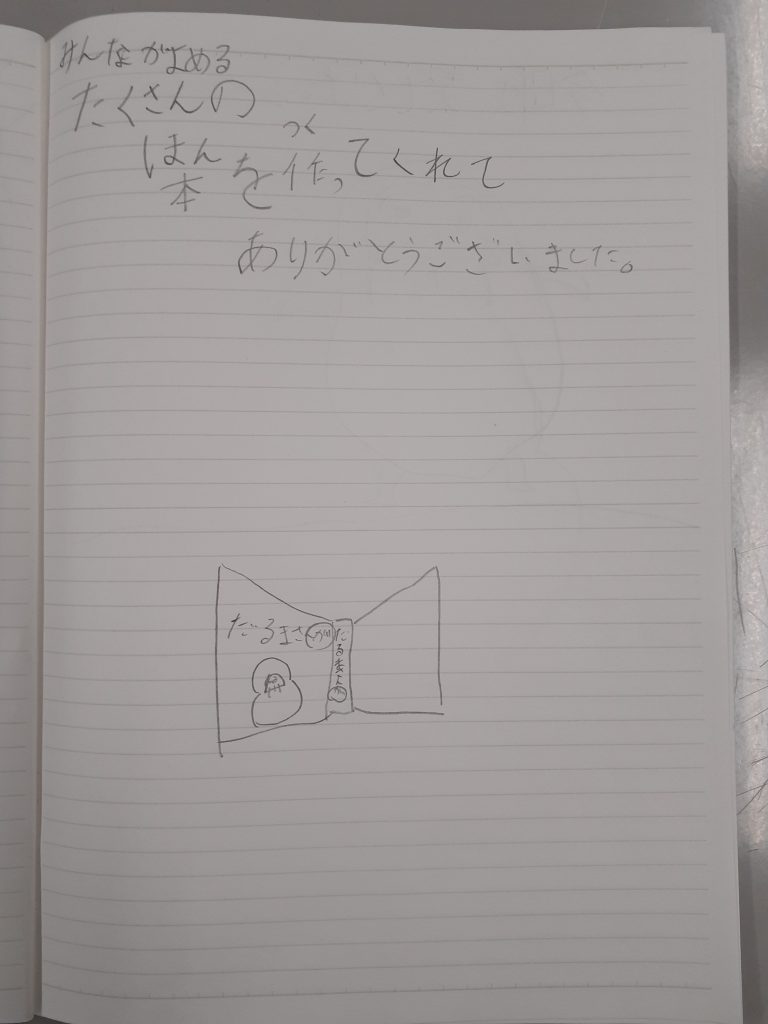 みんながよめる
たくさんの
つく
ほん
本を作ってくれて
ありがとうございました。
だるまさんが
だるまさんが